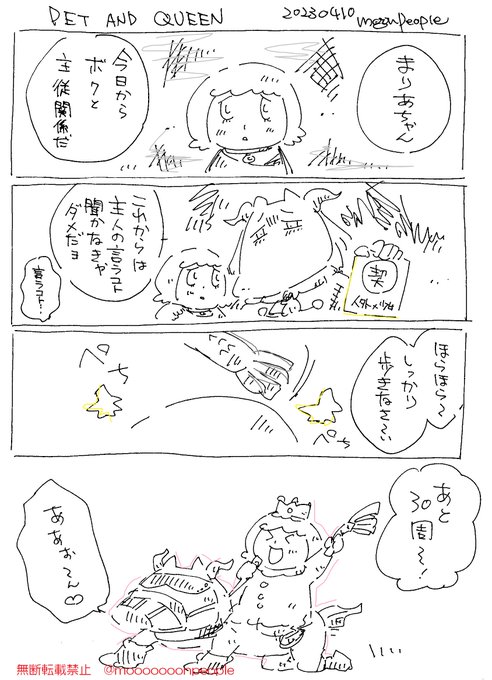 PET AND QUEEN
20230410
moonpeople
まりあちゃん
今日から
ボクと
主従関係だ
これからは
主人の言うコト
聞かなきゃ
ダメだョ
契
言うコト…
ほらほら〜
しっかり
歩きなさ〜い
ぺち
ぺち
あと
30周〜!
ああお〜ん♡
無断転載禁止 @mooooooonpeople